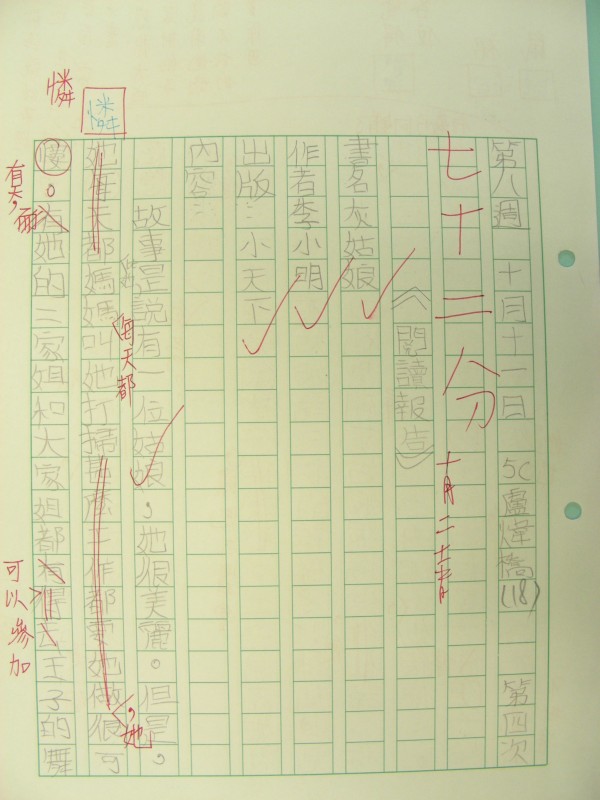 第八週 十月十一日 5C盧煒橋(18) 第四次
七十二分 十月二十
《閱讀報告》
書名灰姑娘
作者李小明
出版：小天下
內容：
故事是說有一位姑娘，她很美麗。但是，
她每天都媽媽叫她打掃甚麼工作都要她做很可
每天都
，她
憐
憐
。為她的三家姐和大家姐都有得去王子的舞
有今，
可以參加